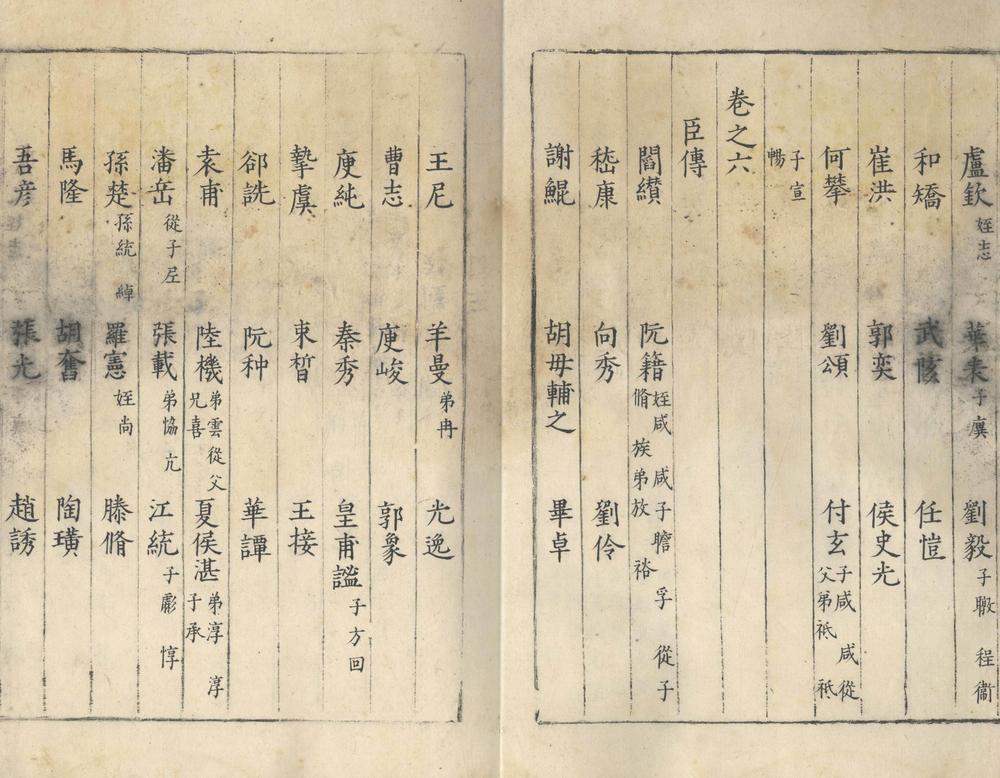 盧欽 姪志 華表 子廙 劉毅 子暾 程衞
和嶠 武陔 任愷
崔洪 郭奕 侯史光
何攀 劉頌 付玄 子咸 咸從父弟祗 祗
子宣 暢
卷之六
臣傳
閻纘 阮籍 姪咸 咸子瞻 孚 從子脩 族弟放 裕
嵇康 向秀 劉伶
謝鯤 胡毋輔之 畢卓
王尼 羊曼 弟冉 光逸
曹志 庾峻 郭象
庾純 秦秀 皇甫謐 子方回
摯虞 束皙 王接
郤詵 阮种 華譚
袁甫 陸機 弟雲 從父兄喜 夏侯湛 弟淳 淳子承
潘岳 從子尼 張載 弟協 亢 江統 子彪 惇
孫楚 孫統 綽 羅憲 姪尚 滕脩
馬隆 胡奮 陶璜
吾彦 張光 趙誘